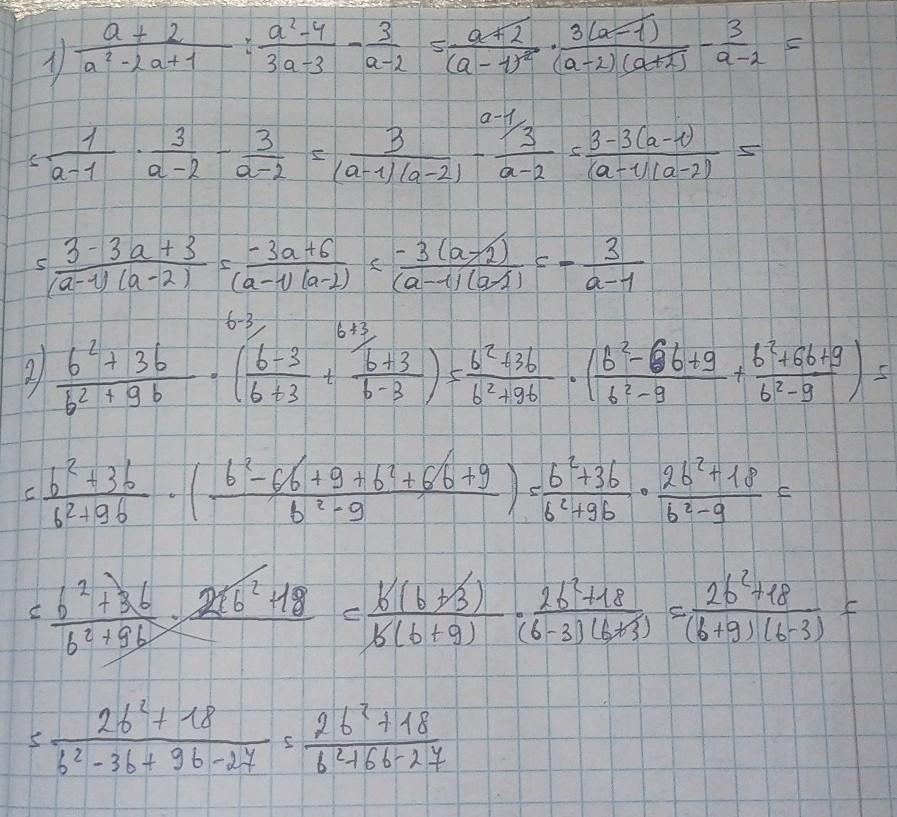 1) (a+2)/(a²-2a+1) : (a²-4)/(3a-3) - 3/(a-2) = (a+2)/(a-1)² · 3(a-1)/((a-2)(a+2)) - 3/(a-2) =
= 1/(a-1) · 3/(a-2) - 3/(a-2) = 3/((a-1)(a-2)) - a-1/ 3/(a-2) = (3-3(a-1))/((a-1)(a-2)) =
= (3-3a+3)/((a-1)(a-2)) = (-3a+6)/((a-1)(a-2)) = (-3(a-2))/((a-1)(a-2)) = - 3/(a-1)
2) (b²+3b)/(b²+9b) · (b-3/ (b-3)/(b+3) + b+3/ (b+3)/(b-3)) = (b²+3b)/(b²+9b) · ((b²-6b+9)/(b²-9) + (b²+6b+9)/(b²-9)) =
= (b²+3b)/(b²+9b) · ((b²-6b+9+b²+6b+9)/(b²-9)) = (b²+3b)/(b²+9b) · (2b²+18)/(b²-9) =
= (b²+3b)/(b²+9b) · 2b²+18 = b(b+3)/(b(b+9)) · (2b²+18)/((b-3)(b+3)) = (2b²+18)/((b+9)(b-3)) =
= (2b²+18)/(b²-3b+9b-27) = (2b²+18)/(b²+6b-27)